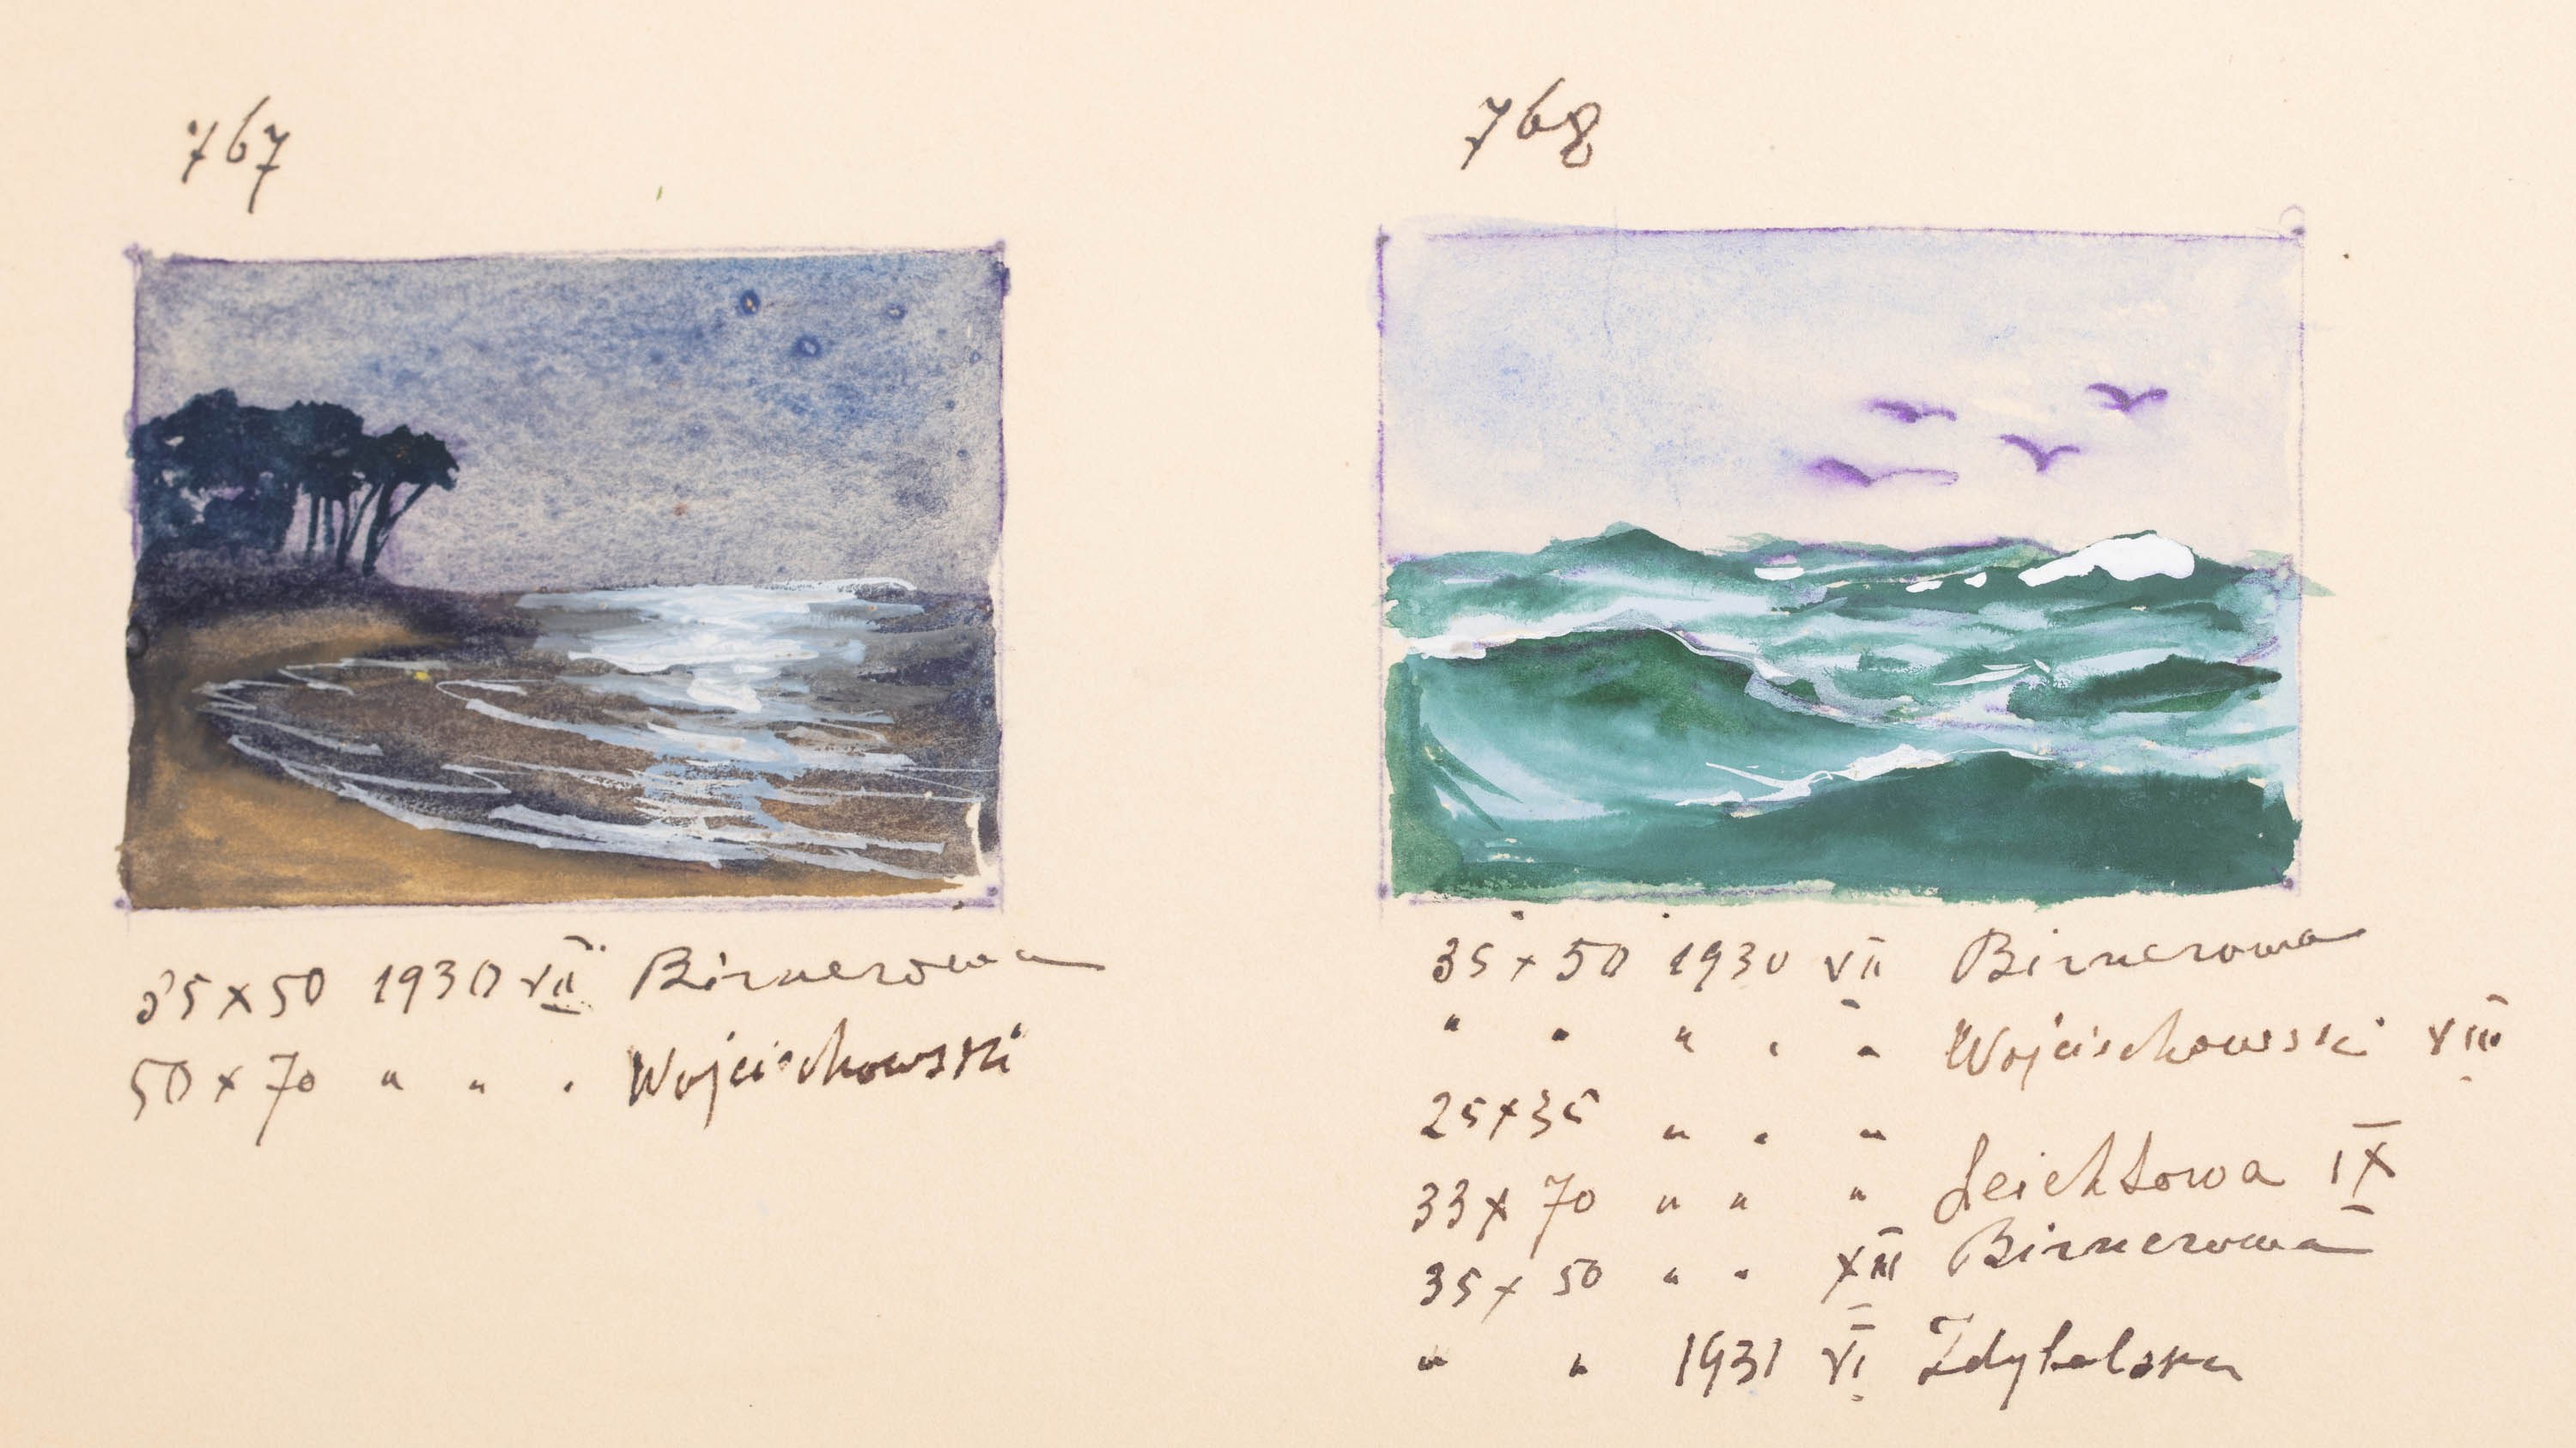 767
35 x 50 1930 VII Birnerowa
50 x 70 " " " Wojciechowski
768
35 x 50 1930 VII Birnerowa
" " " " " Wojciechowski VIII
25 x 35 " " "
33 x 70 " " " Leichtowa IX
35 x 50 " " XII Birnerowa
" " 1931 VI